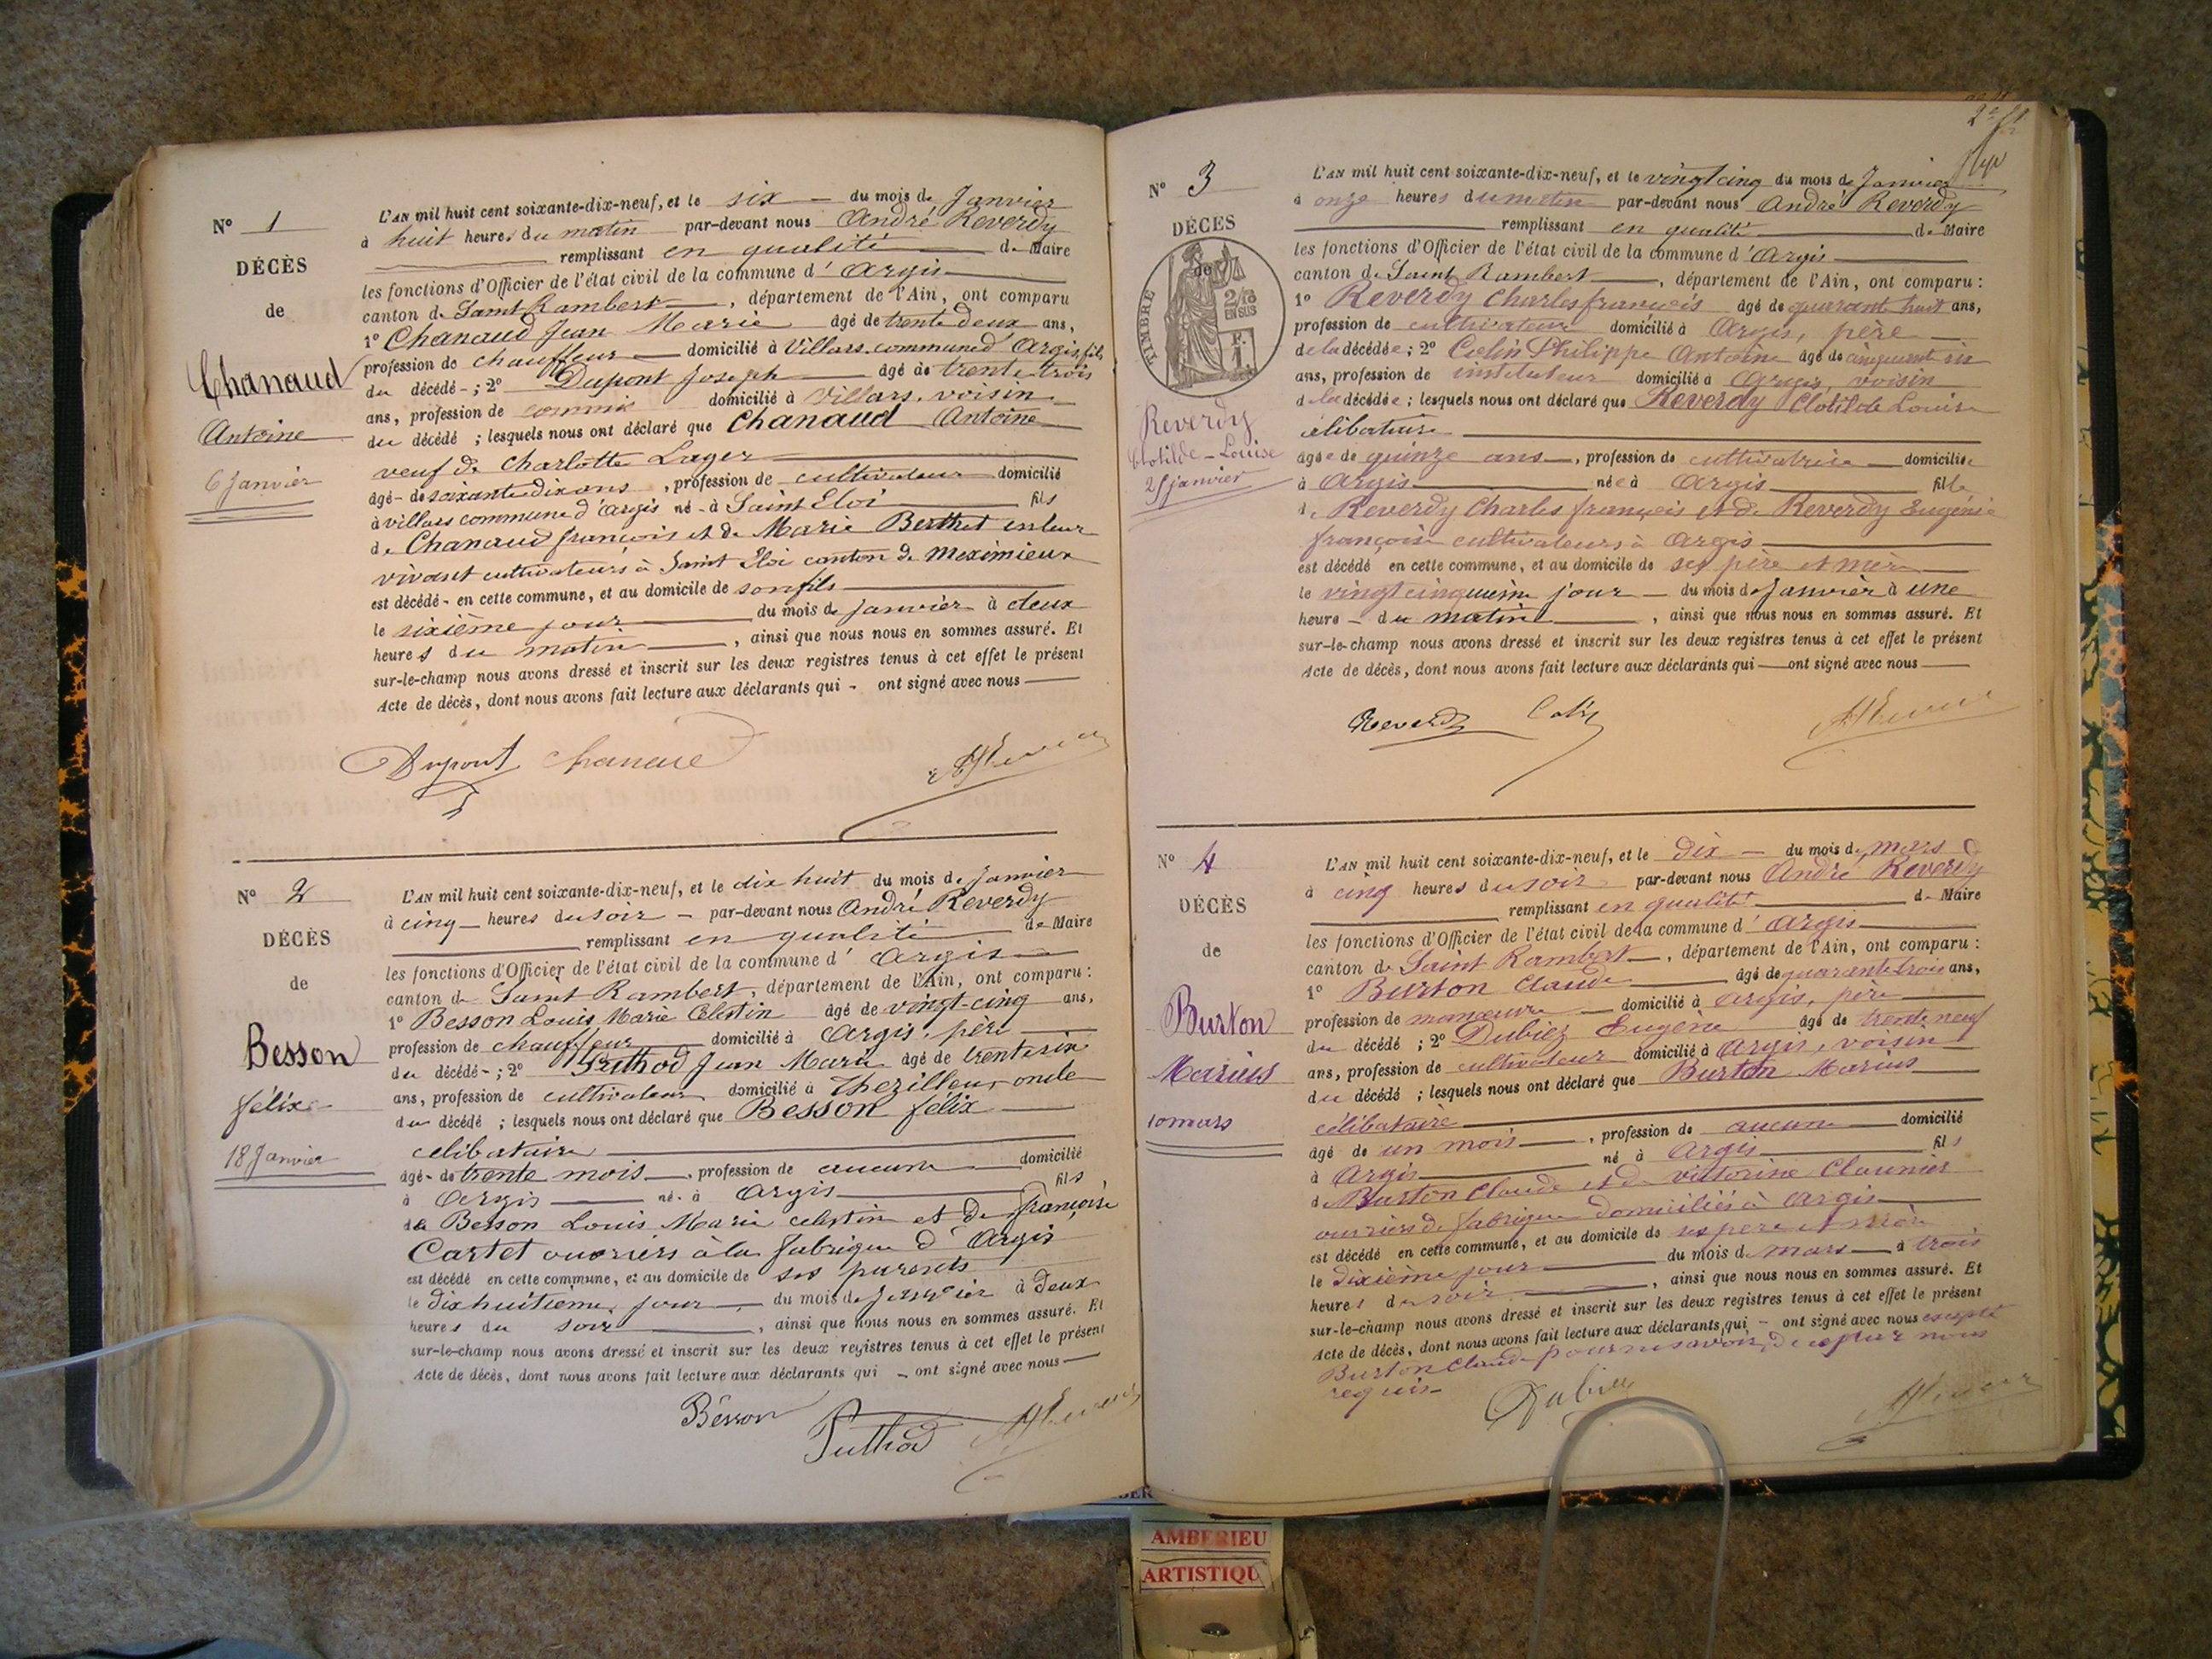 N° 1
DÉCÈS
de
Chanaud
Antoine
6 Janvier
L'AN mil huit cent soixante-dix-neuf, et le six du mois de Janvier
à huit heures du matin par-devant nous André Reverdy
remplissant en qualité de Maire
les fonctions d'Officier de l'état civil de la commune d' Argis
canton de Saint Rambert, département de l'Ain, ont comparu
1° Chanaud Jean Marie âgé de trente deux ans,
profession de chauffeur domicilié à Villars commune d'Argis, fils
du décédé-; 2° Dupont Joseph âgé de trente trois
ans, profession de commis domicilié à Villars, voisin
du décédé ; lesquels nous ont déclaré que Chanaud Antoine
veuf de Charlotte Lager
âgé- de soixante dix ans, profession de cultivateur domicilié
à villars commune d'argis né-à Saint Eloi fils
de Chanaud françois et de Marie Berthet en leur
vivant cultivateurs à Saint Eloi canton de Meximieux
est décédé- en cette commune, et au domicile de son fils
le sixième jour du mois de Janvier à deux
heures du matin, ainsi que nous nous en sommes assuré. Et
sur-le-champ nous avons dressé et inscrit sur les deux registres tenus à cet effet le présent
Acte de décès, dont nous avons fait lecture aux déclarants qui - ont signé avec nous
Dupont Chanaud
N° 2
DÉCÈS
de
Besson
félix
18 Janvier
L'AN mil huit cent soixante-dix-neuf, et le dix huit du mois de Janvier
à cinq heures du soir - par-devant nous André Reverdy
remplissant en qualité de Maire
les fonctions d'Officier de l'état civil de la commune d' Argis
canton de Saint Rambert, département de l'Ain, ont comparu :
1° Besson Louis Marie Célestin âgé de vingt-cinq ans,
profession de chauffeur domicilié à Argis, père
du décédé-; 2° Puthod Jean Marie âgé de trente six
ans, profession de cultivateur domicilié à Thezillieu, oncle
du décédé ; lesquels nous ont déclaré que Besson félix
célibataire
âgé- de trente mois, profession de aucune domicilié
à Argis né-à Argis fils
de Besson Louis Marie celestin et de françoise
Cartet ouvriers à la fabrique d'Argis
est décédé en cette commune, et au domicile de ses parents
le dix huitième jour du mois de Janvier à deux
heures du soir, ainsi que nous nous en sommes assuré. Et
sur-le-champ nous avons dressé et inscrit sur les deux registres tenus à cet effet le présent
Acte de décès, dont nous avons fait lecture aux déclarants qui - ont signé avec nous
Besson Puthod
2e
N° 3
DÉCES
de
TIMBRE
2/10
EN SUS
Reverdy
Clotilde-Louise
25 janvier
L'AN mil huit cent soixante-dix-neuf, et le vingt cinq du mois de Janvier
à onze heures du matin par-devant nous André Reverdy
remplissant en qualité de Maire
les fonctions d'Officier de l'état civil de la commune d' Argis
canton de Saint Rambert, département de l'Ain, ont comparu :
1° Reverdy Charles françois âgé de quarant huit ans,
profession de cultivateur domicilié à Argis, père
de la décédée ; 2° Colin Philippe Antoine âgé de cinquant six
ans, profession de instituteur domicilié à Argis, voisin
de la décédée ; lesquels nous ont déclaré que Reverdy Clotilde Louise
célibataire
âgée de quinze ans, profession de cultivatrice domiciliée
à Argis née à Argis fille
de Reverdy Charles françois et de Reverdy Eugénie
françoise cultivateurs à Argis
est décédé en cette commune, et au domicile de ses père et mère
le vingt cinquième jour du mois de Janvier à une
heure - du matin, ainsi que nous nous en sommes assuré. Et
sur-le-champ nous avons dressé et inscrit sur les deux registres tenus à cet effet le présent
Acte de décès, dont nous avons fait lecture aux déclarants qui ont signé avec nous
Reverdy Colin
N° 4
DÉCÈS
de
Burton
Marius
10 mars
L'AN mil huit cent soixante-dix-neuf, et le dix du mois de mars
à cinq heures du soir par-devant nous André Reverdy
remplissant en qualité de Maire
les fonctions d'Officier de l'état civil de la commune d' Argis
canton de Saint Rambert, département de l'Ain, ont comparu :
1° Burton Claude âgé de quarante trois ans,
profession de manœuvre domicilié à Argis, père
du décédé ; 2° Dubiez Eugène âgé de trente neuf
ans, profession de cultivateur domicilié à Argis, voisin
du décédé ; lesquels nous ont déclaré que Burton Marius
célibataire
âgé de un mois, profession de aucune domicilié
à Argis né à Argis fils
de Burton Claude et de victorine Claunier
ouvriers de fabrique domiciliés à Argis
est décédé en cette commune, et au domicile de ses père et mère
le dixième jour du mois de mars à trois
heures du soir, ainsi que nous nous en sommes assuré. Et
sur-le-champ nous avons dressé et inscrit sur les deux registres tenus à cet effet le présent
Acte de décès, dont nous avons fait lecture aux déclarants qui - ont signé avec nous excepté
Burton Claude pour ne savoir, de ce par nous
requis
AMBERIEU
ARTISTIQU